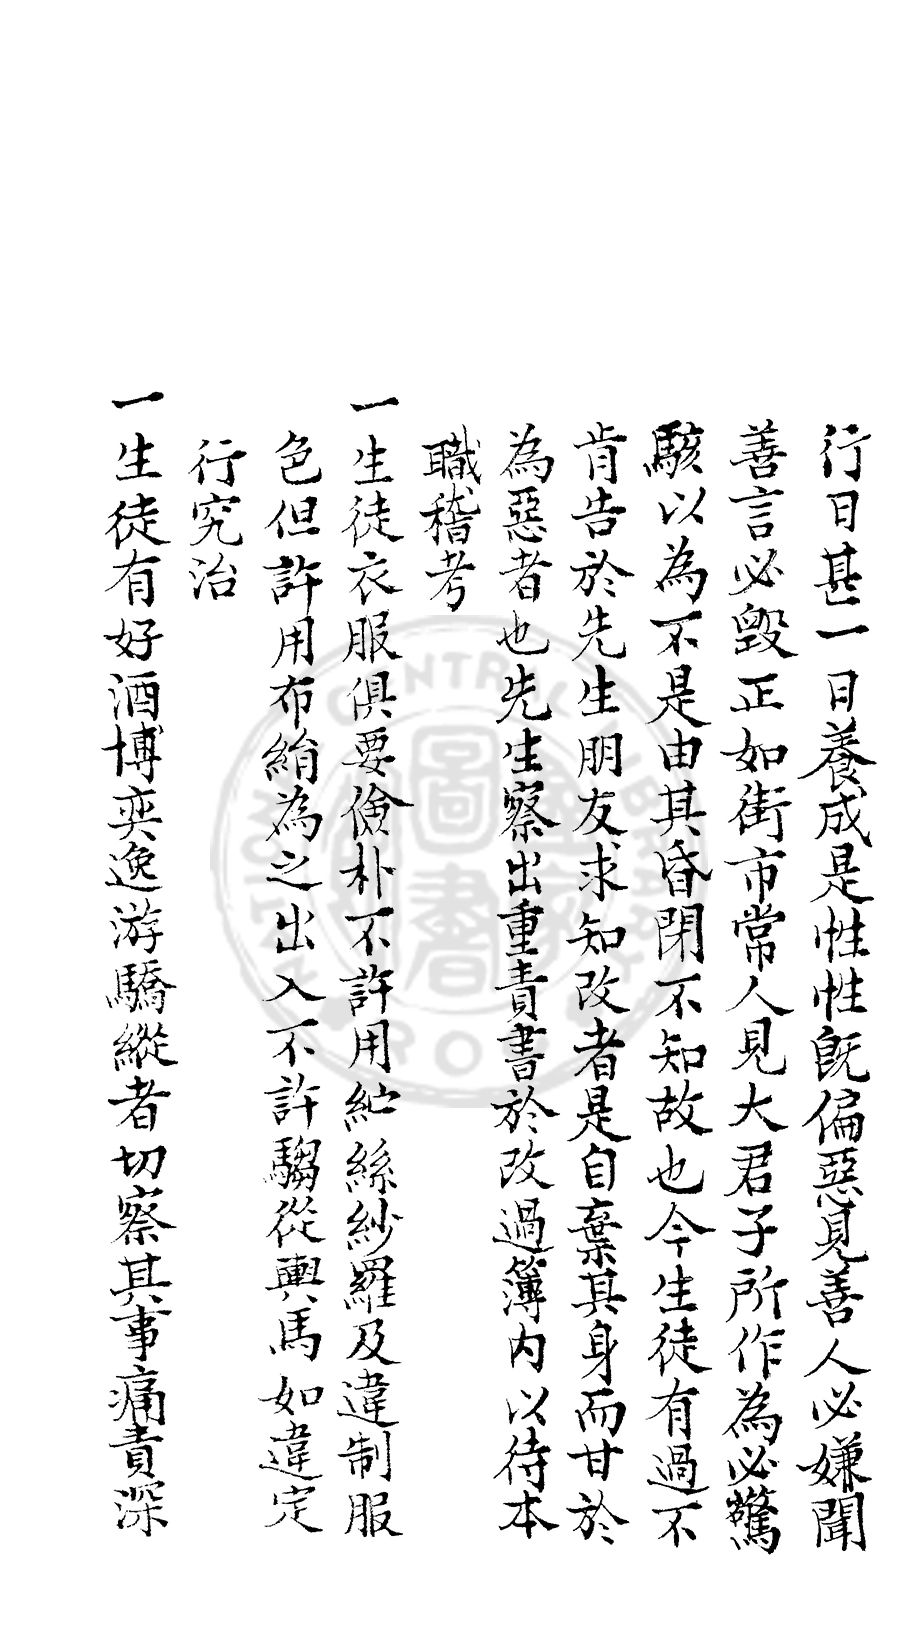 行日甚一日養成是性性既偏惡見善人必嫌聞
善言必毀正如街市常人見大君子所作為必驚
駭以為不是由其昏閉不知故也今生徒有過不
肯告於先生朋友求知改者是自棄其身而甘於
為惡者也先生察出重責書於改過簿内以待本
職稽考
一生徒衣服俱要儉朴不許用紵絲紗羅及違制服
色但許用布絹為之出入不許騶從輿馬如違定
行究治
一生徒有好酒博奕逸游驕縱者切察其事痛責深